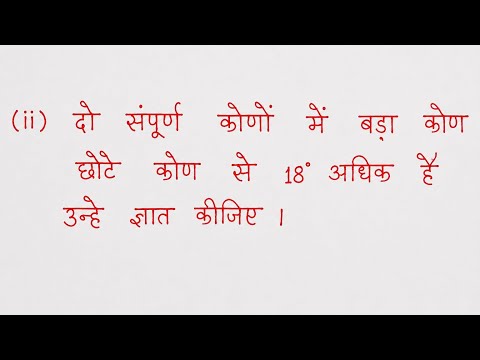 (ii) दो संपूर्ण कोणों में बड़ा कोण
छोटे कोण से 18° अधिक है
उन्हे ज्ञात कीजिए ।